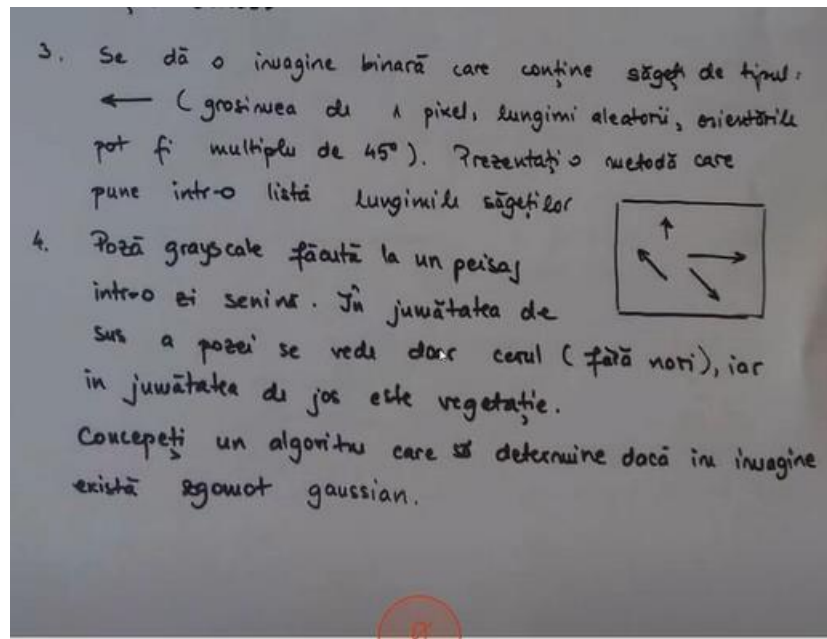 3. Se dă o imagine binară care conține săgeți de tipul:
← (grosimea de 1 pixel, lungimi aleatorii, orientările
pot fi multiplu de 45°). Prezentați o metodă care
pune intr-o listă lungimile săgeților
4. Poză grayscale făcută la un peisaj
intr-o zi senină. În jumătatea de
sus a pozei se vede doar cerul (fără nori), iar
in jumătatea de jos este vegetație.
Concepeți un algoritm care să determine dacă in imagine
există zgomot gaussian.